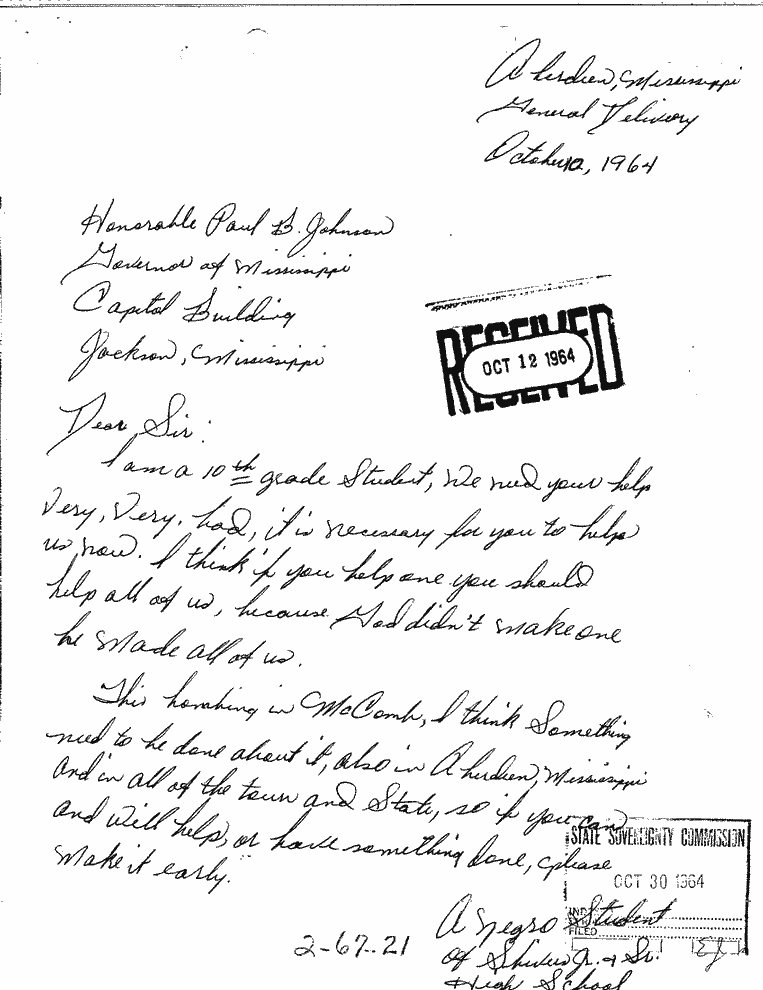 Aberdeen, Mississippi
General Delivery
October 10, 1964
Honorable Paul B. Johnson
Governor of Mississippi
Capitol Building
Jackson, Mississippi
RECEIVED
OCT 12 1964
Dear Sir:
I am a 10th grade Student, We need your help
Very, Very, bad, it is necessary for you to help
us now. I think if you help one you should
help all of us, because God didn't make one
he made all of us.
This bombing in McComb, I think Something
need to be done about it, also in Aberdeen, Mississippi
and in all of the town and State, so if you can
and will help, or have something done, please
make it early.
STATE SOVEREIGNTY COMMISSION
OCT 30 1964
FILED
A Negro Student
of Shivers Jr. & Sr.
High School
2-67-21